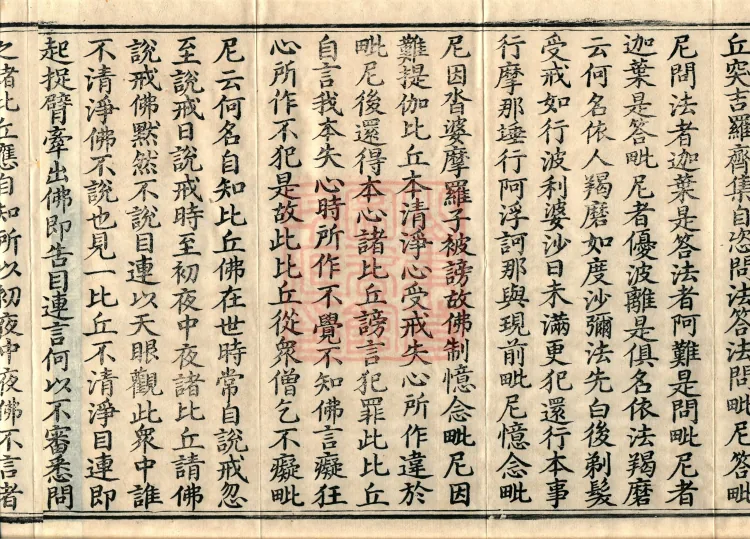 丘突吉羅齊集自恣問法答法問毗尼答毗
尼問法者迦葉是答法者阿難是問毗尼者
迦葉是答毗尼者優波離是俱名依法羯磨
云何名依人羯磨如度沙彌法先白後剃髮
受戒如行波利婆沙日未滿更犯還行本事
行摩那埵行阿浮訶那與現前毗尼憶念毗
尼因沓婆摩羅子被謗故佛制憶念毗尼因
難提伽比丘本清淨心受戒失心所作違於
毗尼後還得本心諸比丘謗言犯罪此比丘
自言我本失心時所作不覺不知佛言癡狂
心所作不犯是故此比丘從衆僧乞不癡毗
尼云何名自知比丘佛在世時常自說戒忽
至說戒日說戒時至初夜中夜諸比丘請佛
說戒佛默然不說目連以天眼觀此衆中誰
不清淨佛不說也見一比丘不清淨目連即
起捉臂牽出佛即告目連言何以不審悉問
之諸比丘應自知所以初夜中夜佛不言者